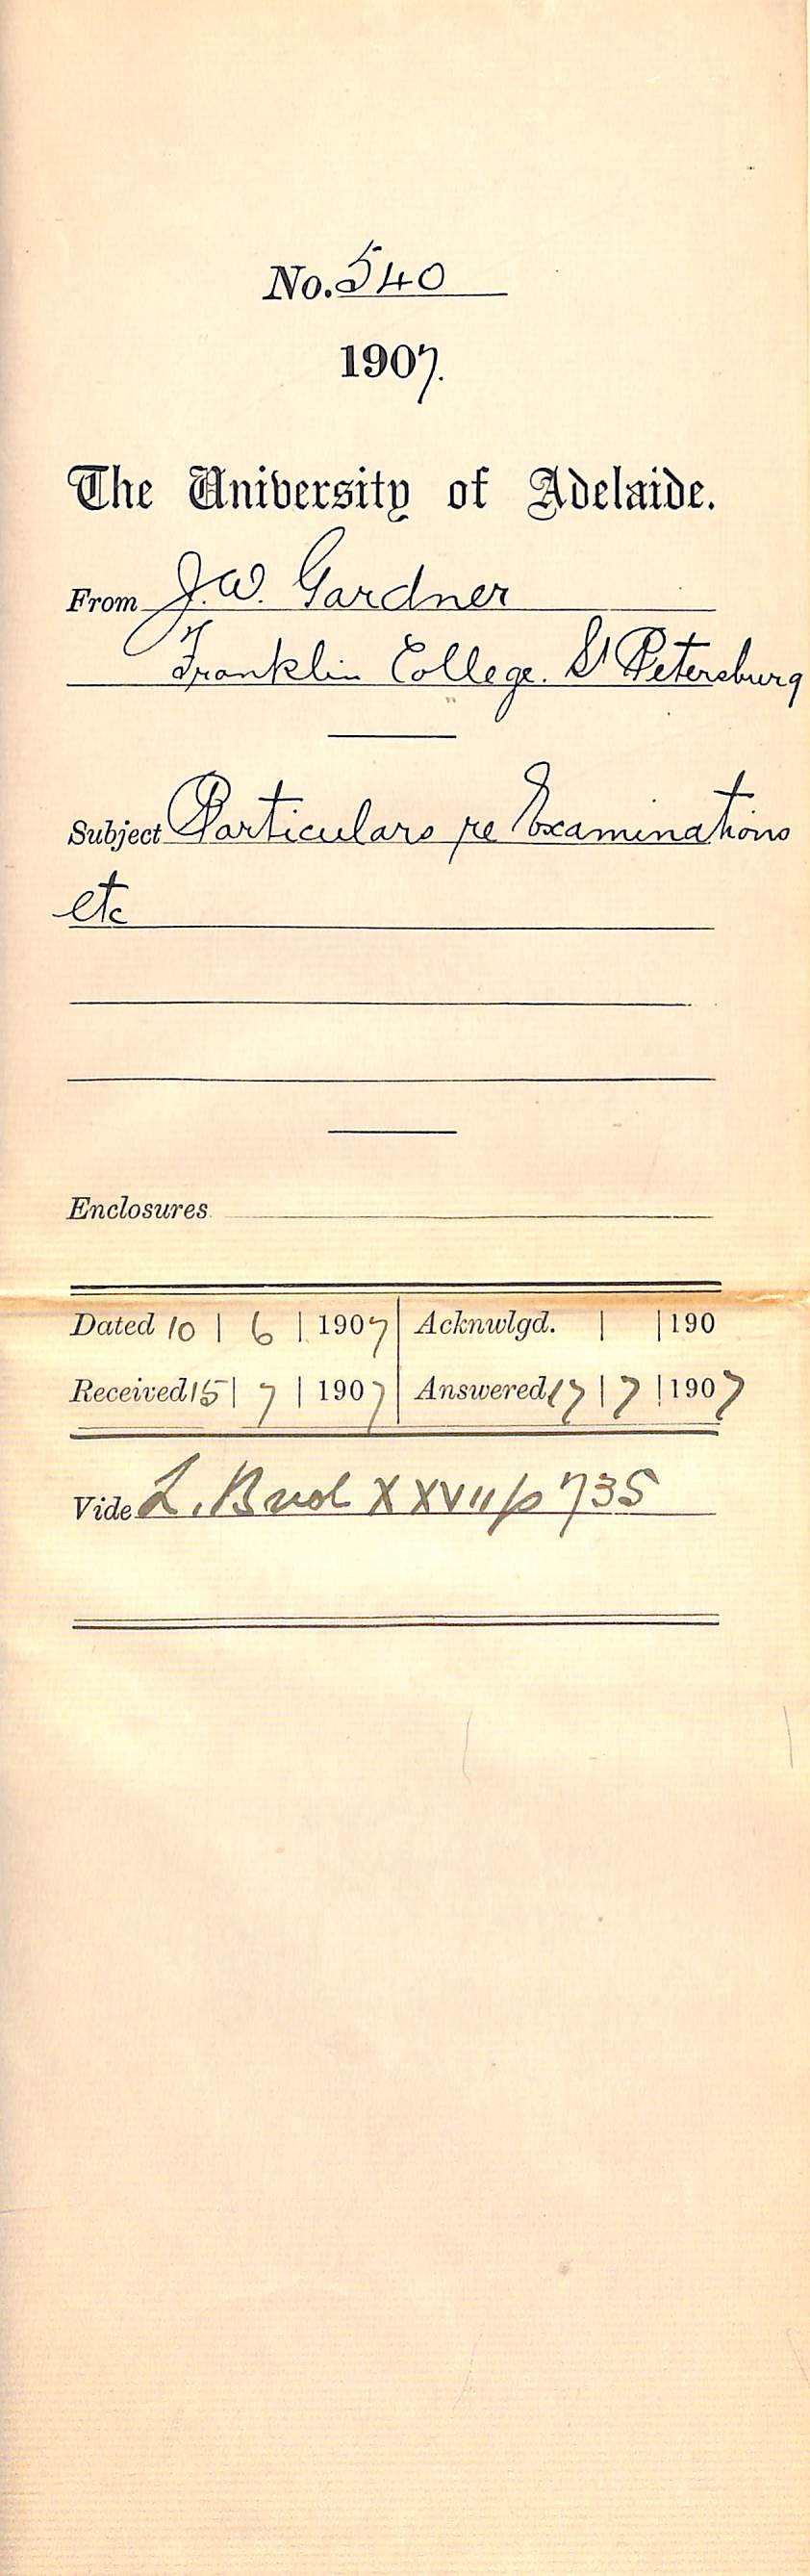 No. 540
1907.
The University of Adelaide.
From J.W. Gardner
Franklin College. St Petersburg
Subject Particulars re Examinations
etc
Enclosures
Dated 10 | 6 | 1907 | Acknwlgd. | | 190
Received 15 | 7 | 1907 | Answered 17 | 7 | 1907
Vide L. B vol XXVII p 735